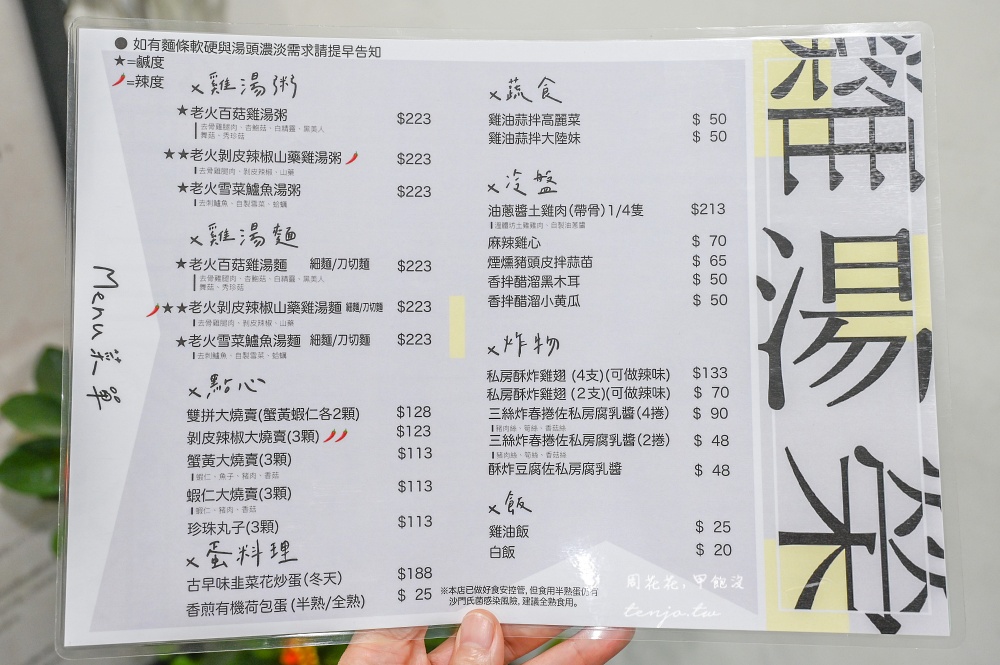 ● 如有麵條軟硬與湯頭濃淡需求請提早告知
★=鹹度
🌶=辣度
Menu 菜單
×雞湯粥
★老火百菇雞湯粥 $223
去骨雞腿肉、杏鮑菇、白精靈、黑美人
舞菇、秀珍菇
★★老火剝皮辣椒山藥雞湯粥🌶 $223
去骨雞腿肉、剝皮辣椒、山藥
★老火雪菜鱸魚湯粥 $223
去刺鱸魚、自製雪菜、蛤蠣
×雞湯麵
★老火百菇雞湯麵 細麵/刀切麵 $223
去骨雞腿肉、杏鮑菇、白精靈、黑美人
舞菇、秀珍菇
🌶★★老火剝皮辣椒山藥雞湯麵 細麵/刀切麵 $223
去骨雞腿肉、剝皮辣椒、山藥
★老火雪菜鱸魚湯麵 細麵/刀切麵 $223
去刺鱸魚、自製雪菜、蛤蠣
×點心
雙拼大燒賣(蟹黃蝦仁各2顆) $128
剝皮辣椒大燒賣(3顆)🌶🌶 $123
蟹黃大燒賣(3顆) $113
蝦仁、魚子、豬肉、香菇
蝦仁大燒賣(3顆) $113
蝦仁、豬肉、香菇
珍珠丸子(3顆) $113
×蛋料理
古早味韭菜花炒蛋(冬天) $188
香煎有機荷包蛋(半熟/全熟) $ 25
×蔬食
雞油蒜拌高麗菜 $ 50
雞油蒜拌大陸妹 $ 50
×冷盤
油蔥醬土雞肉(帶骨)1/4隻 $213
溫體仿土雞雞肉、自製油蔥醬
麻辣雞心 $ 70
煙燻豬頭皮拌蒜苗 $ 65
香拌醋溜黑木耳 $ 50
香拌醋溜小黃瓜 $ 50
×炸物
私房酥炸雞翅 (4支)(可做辣味) $133
私房酥炸雞翅 (2支)(可做辣味) $ 70
三絲炸春捲佐私房腐乳醬(4捲) $ 90
豬肉絲、筍絲、香菇絲
三絲炸春捲佐私房腐乳醬(2捲) $ 48
豬肉絲、筍絲、香菇絲
酥炸豆腐佐私房腐乳醬 $ 48
×飯
雞油飯 $ 25
白飯 $ 20
※本店已做好食安控管,但食用半熟蛋仍有
沙門氏菌感染風險,建議全熟食用。
雞湯菜
周花花,甲飽沒
tenjo.tw